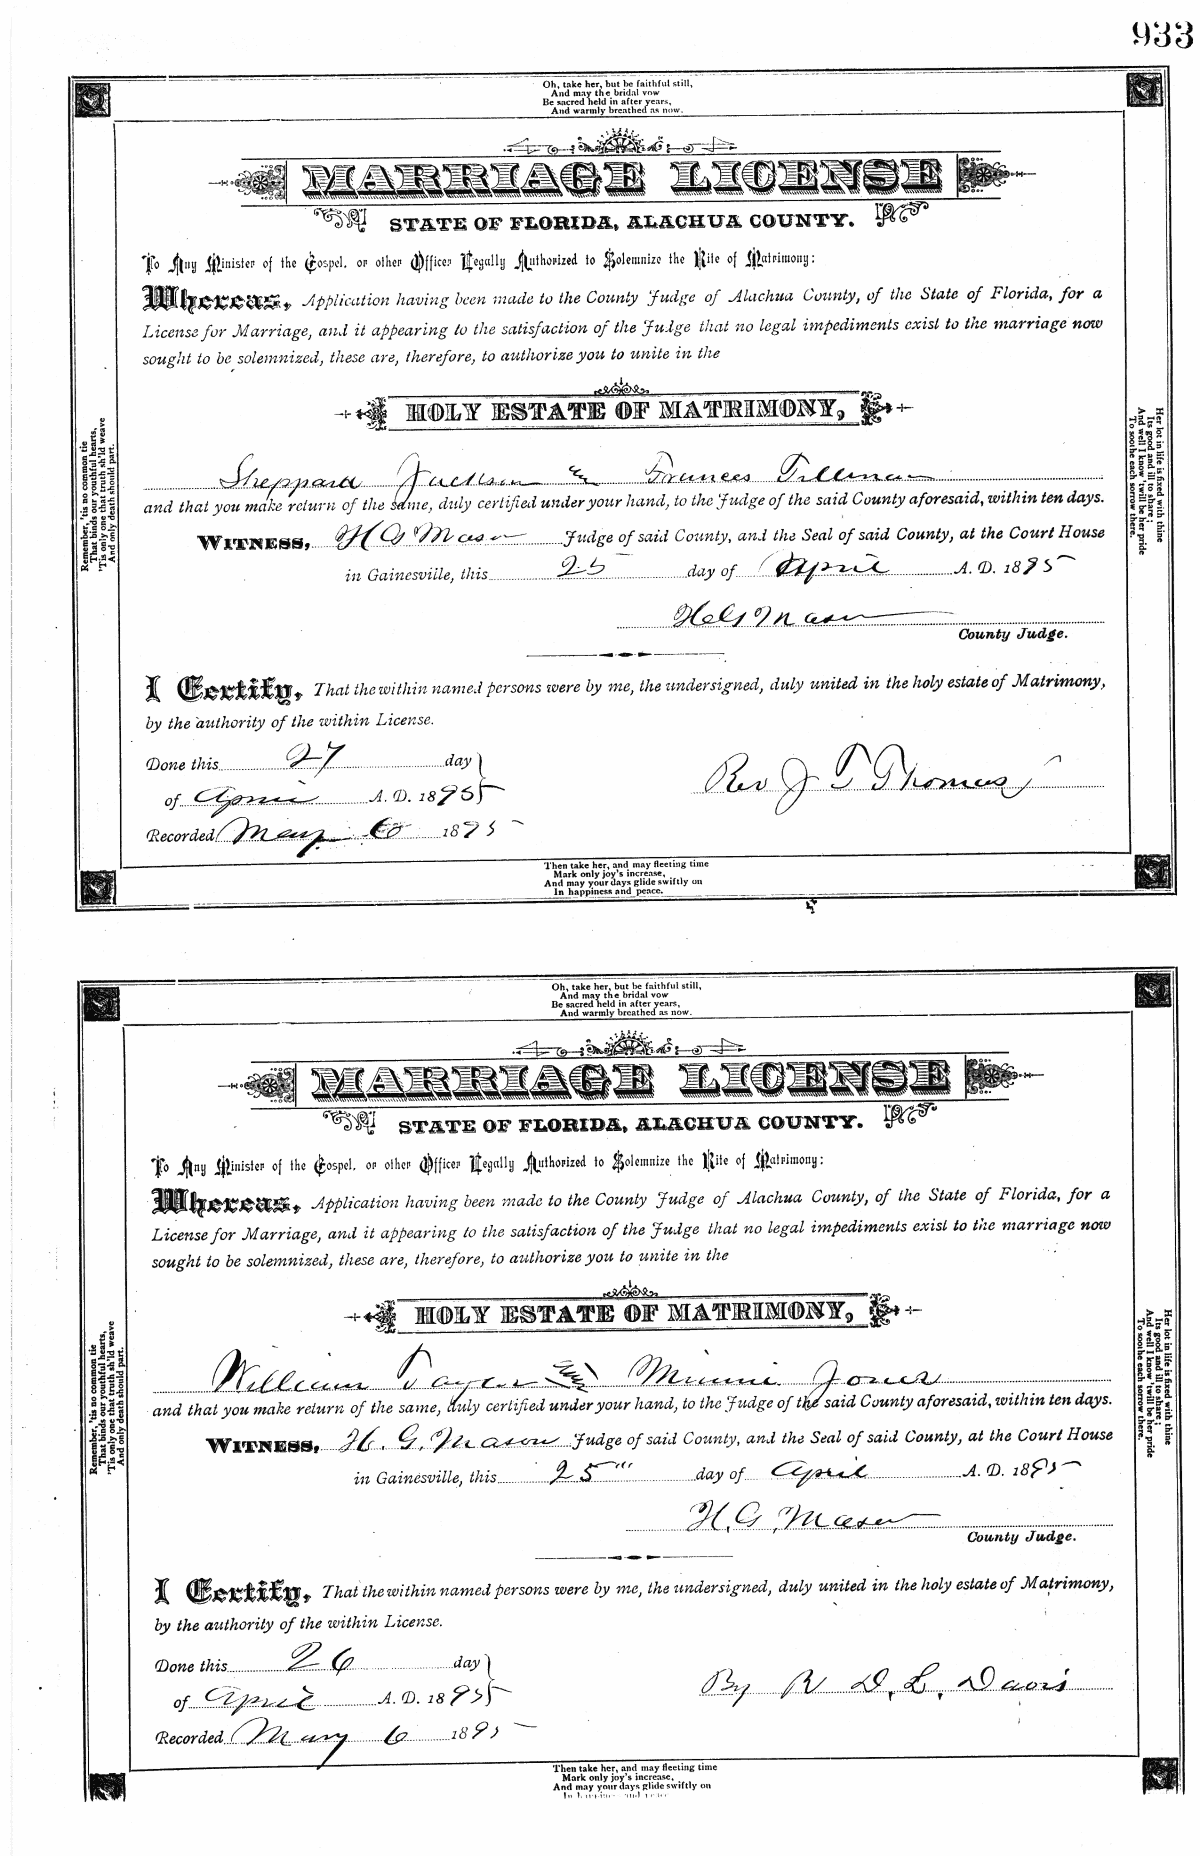 933
Oh, take her, but be faithful still,
And may the bridal vow
Be sacred held in after years,
And warmly breathed as now.
MARRIAGE LICENSE
STATE OF FLORIDA, ALACHUA COUNTY.
To Any Minister of the Gospel, or other Officer Legally Authorized to Solemnize the Rite of Matrimony:
Whereas, Application having been made to the County Judge of Alachua County, of the State of Florida, for a
License for Marriage, and it appearing to the satisfaction of the Judge that no legal impediments exist to the marriage now
sought to be solemnized, these are, therefore, to authorize you to unite in the
HOLY ESTATE OF MATRIMONY,
Sheppard Jackson and Frances Tillman
and that you make return of the same, duly certified under your hand, to the Judge of the said County aforesaid, within ten days.
WITNESS, H G Mason Judge of said County, and the Seal of said County, at the Court House
in Gainesville, this 25 day of April A. D. 1895
H G Mason
County Judge.
I Certify, That the within named persons were by me, the undersigned, duly united in the holy estate of Matrimony,
by the authority of the within License.
Done this 27 day
of April A. D. 1895
Rev J T Thomas
Recorded May 6 1895
Remember, 'tis no common tie
That binds our youthful hearts,
'Tis only one that truth sh'ld weave
And only death should part.
Her lot in life is fixed with thine
Its good and ill to share;
And well I know 'twill be her pride
To soothe each sorrow there.
Then take her, and may fleeting time
Mark only joy's increase,
And may your days glide swiftly on
In happiness and peace.
Oh, take her, but be faithful still,
And may the bridal vow
Be sacred held in after years,
And warmly breathed as now.
MARRIAGE LICENSE
STATE OF FLORIDA, ALACHUA COUNTY.
To Any Minister of the Gospel, or other Officer Legally Authorized to Solemnize the Rite of Matrimony:
Whereas, Application having been made to the County Judge of Alachua County, of the State of Florida, for a
License for Marriage, and it appearing to the satisfaction of the Judge that no legal impediments exist to the marriage now
sought to be solemnized, these are, therefore, to authorize you to unite in the
HOLY ESTATE OF MATRIMONY,
William Taylor and Minnie Jones
and that you make return of the same, duly certified under your hand, to the Judge of the said County aforesaid, within ten days.
WITNESS, H. G. Mason Judge of said County, and the Seal of said County, at the Court House
in Gainesville, this 25" day of April A. D. 1895
H. G. Mason
County Judge.
I Certify, That the within named persons were by me, the undersigned, duly united in the holy estate of Matrimony,
by the authority of the within License.
Done this 26 day
of April A. D. 1895
By R D. L. Davis
Recorded May 6 1895
Remember, 'tis no common tie
That binds our youthful hearts,
'Tis only one that truth sh'ld weave
And only death should part.
Her lot in life is fixed with thine
Its good and ill to share;
And well I know 'twill be her pride
To soothe each sorrow there.
Then take her, and may fleeting time
Mark only joy's increase,
And may your days glide swiftly on
In happiness and peace.